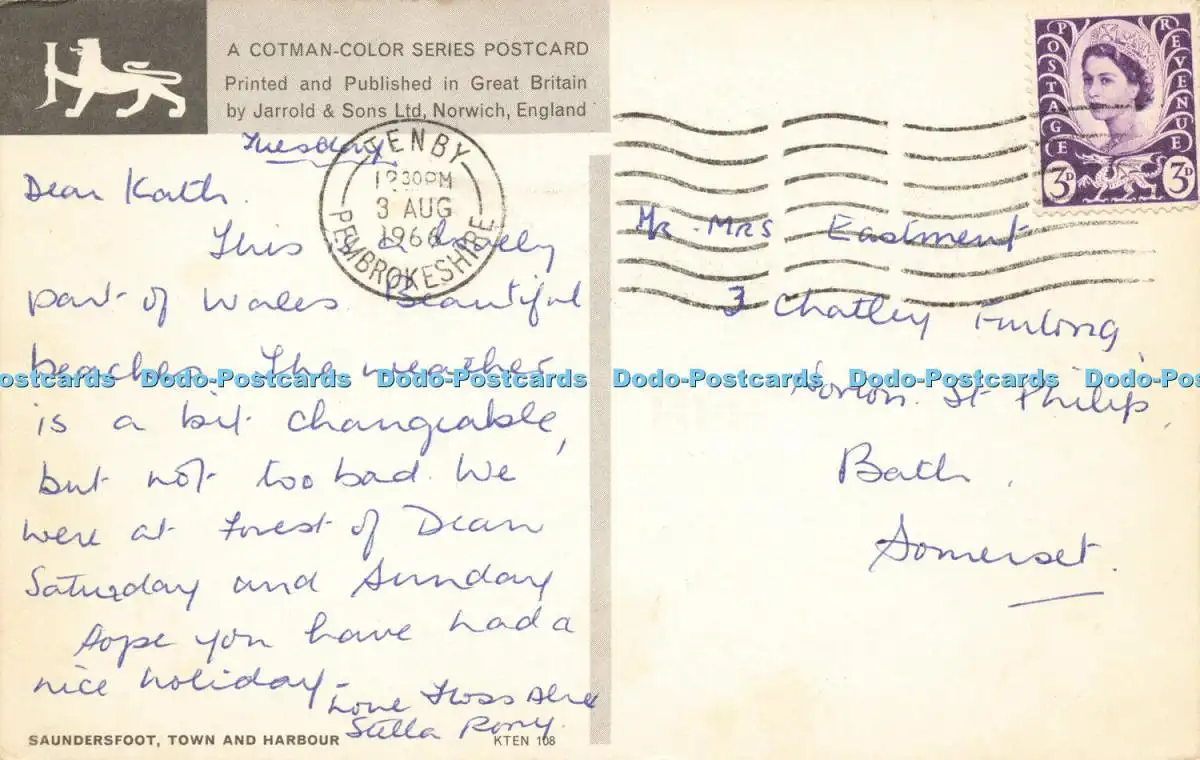 A COTMAN-COLOR SERIES POSTCARD
Printed and Published in Great Britain
by Jarrold & Sons Ltd, Norwich, England
Tuesday
Dear Kath.
This is a lovely
part of Wales. Beautiful
beaches. The weather
is a bit changeable,
but not too bad. We
were at Forest of Dean
Saturday and Sunday
Hope you have had a
nice holiday-
Love Floss
Stella Rony.
SAUNDERSFOOT, TOWN AND HARBOUR
KTEN 108
TENBY
12 30PM
3 AUG
1966
PEMBROKESHIRE
POSTAGE REVENUE
3D 3D
Mr. MRS Eastment
3 Chatley Furlong,
Norton St Philip,
Bath,
Somerset.
ostcards Dodo-Postcards Dodo-Postcards Dodo-Postcards Dodo-Postcards Dodo-Post